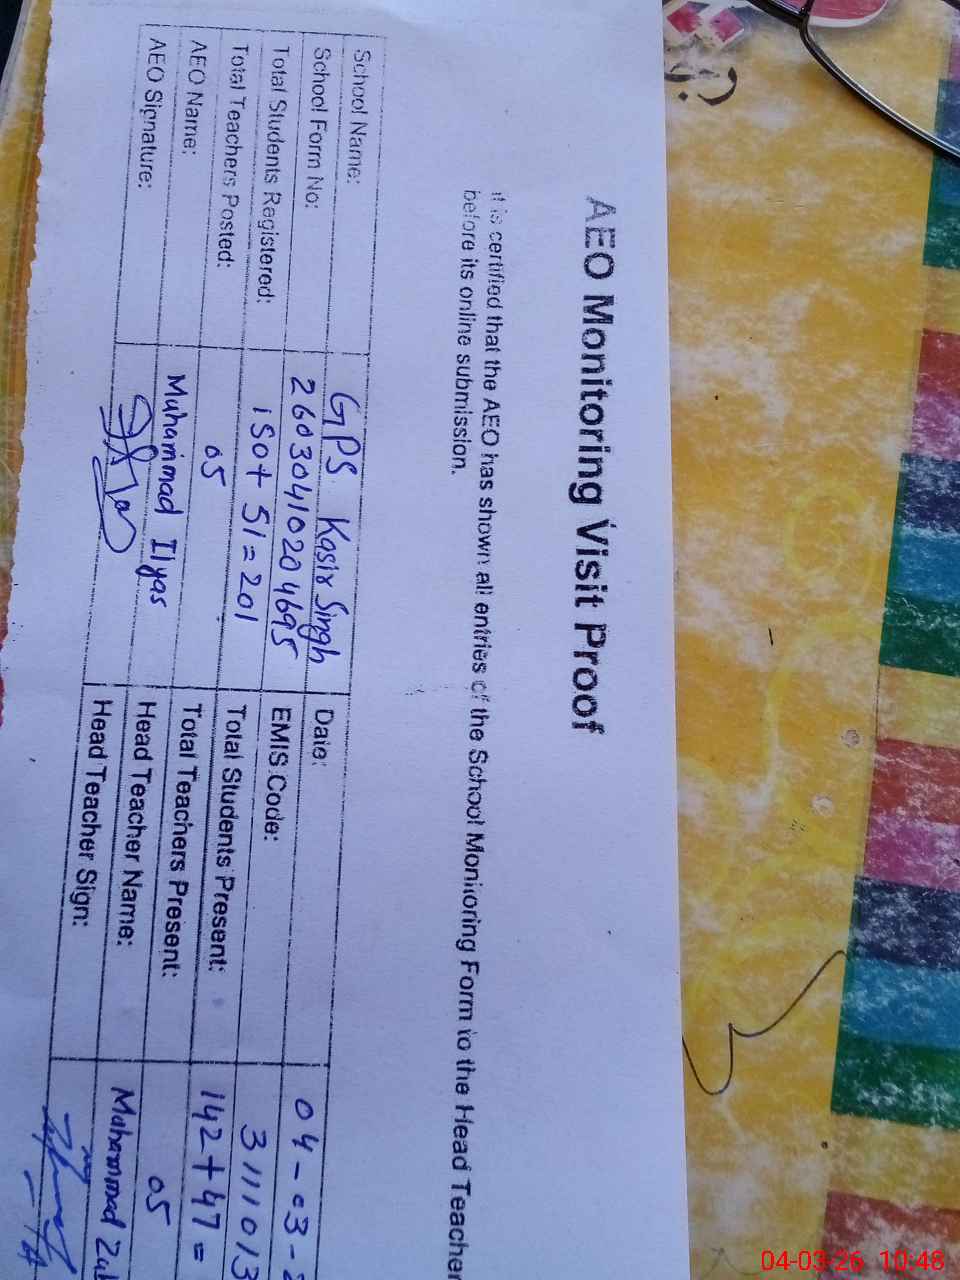 AEO Monitoring Visit Proof
It is certified that the AEO has shown all entries of the School Monitoring Form to the Head Teacher
before its online submission.
School Name: GPS Kasir Singh Date: 04-03-
School Form No: 2603041020 4695 EMIS Code: 3111013
Total Students Registered: 150+ 51=201 Total Students Present: 142+47=
Total Teachers Posted: 05 Total Teachers Present: 05
AEO Name: Muhammad Ilyas Head Teacher Name: Muhammad
AEO Signature: Head Teacher Sign:
04-03-26 10:48